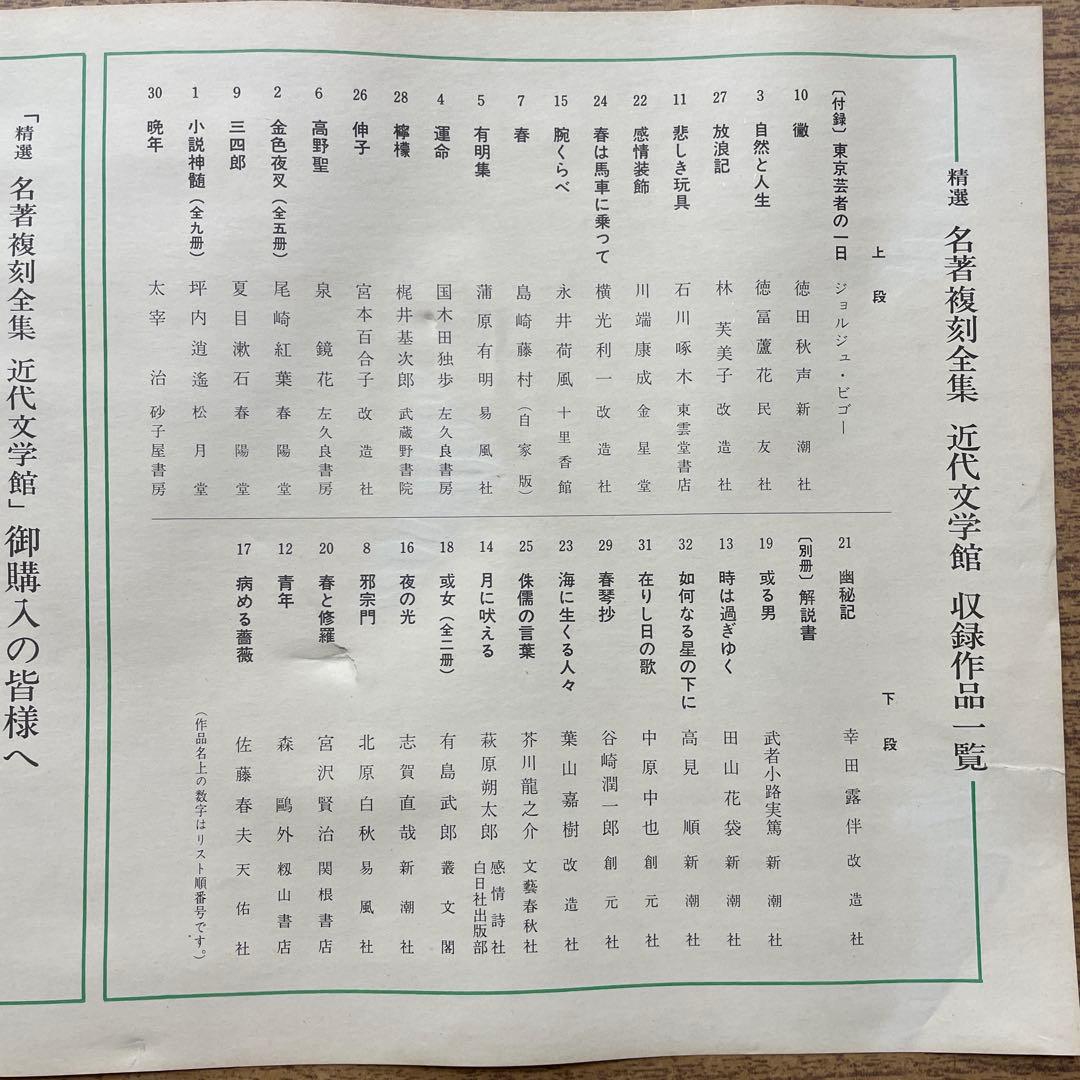 精選 名著複刻全集 近代文学館 収録作品一覧
上段
〔付録〕東京芸者の一日 ジョルジュ・ビゴー
10 黴 徳田秋声 新潮社
3 自然と人生 徳冨蘆花 民友社
27 放浪記 林芙美子 改造社
11 悲しき玩具 石川啄木 東雲堂書店
22 感情装飾 川端康成 金星堂
24 春は馬車に乗って 横光利一 改造社
15 腕くらべ 永井荷風 十里香館
7 春 島崎藤村 (自家版)
5 有明集 蒲原有明 易風社
4 運命 国木田独歩 左久良書房
28 檸檬 梶井基次郎 武蔵野書院
26 伸子 宮本百合子 改造社
6 高野聖 泉鏡花 左久良書房
2 金色夜叉(全五冊) 尾崎紅葉 春陽堂
9 三四郎 夏目漱石 春陽堂
1 小説神髄(全九冊) 坪内逍遙 松月堂
30 晩年 太宰治 砂子屋書房
下段
21 幽秘記 幸田露伴 改造社
〔別冊〕解説書
19 或る男 武者小路実篤 新潮社
13 時は過ぎゆく 田山花袋 新潮社
32 如何なる星の下に 高見順 新潮社
31 在りし日の歌 中原中也 創元社
29 春琴抄 谷崎潤一郎 創元社
23 海に生くる人々 葉山嘉樹 改造社
25 侏儒の言葉 芥川龍之介 文藝春秋社
14 月に吠える 萩原朔太郎 感情詩社
白日社出版部
18 或女(全二冊) 有島武郎 叢文閣
16 夜の光 志賀直哉 新潮社
8 邪宗門 北原白秋 易風社
20 春と修羅 宮沢賢治 関根書店
12 青年 森鷗外 籾山書店
17 病める薔薇 佐藤春夫 天佑社
(作品名上の数字はリスト順番号です。)
「精選 名著複刻全集 近代文学館」御購入の皆様へ